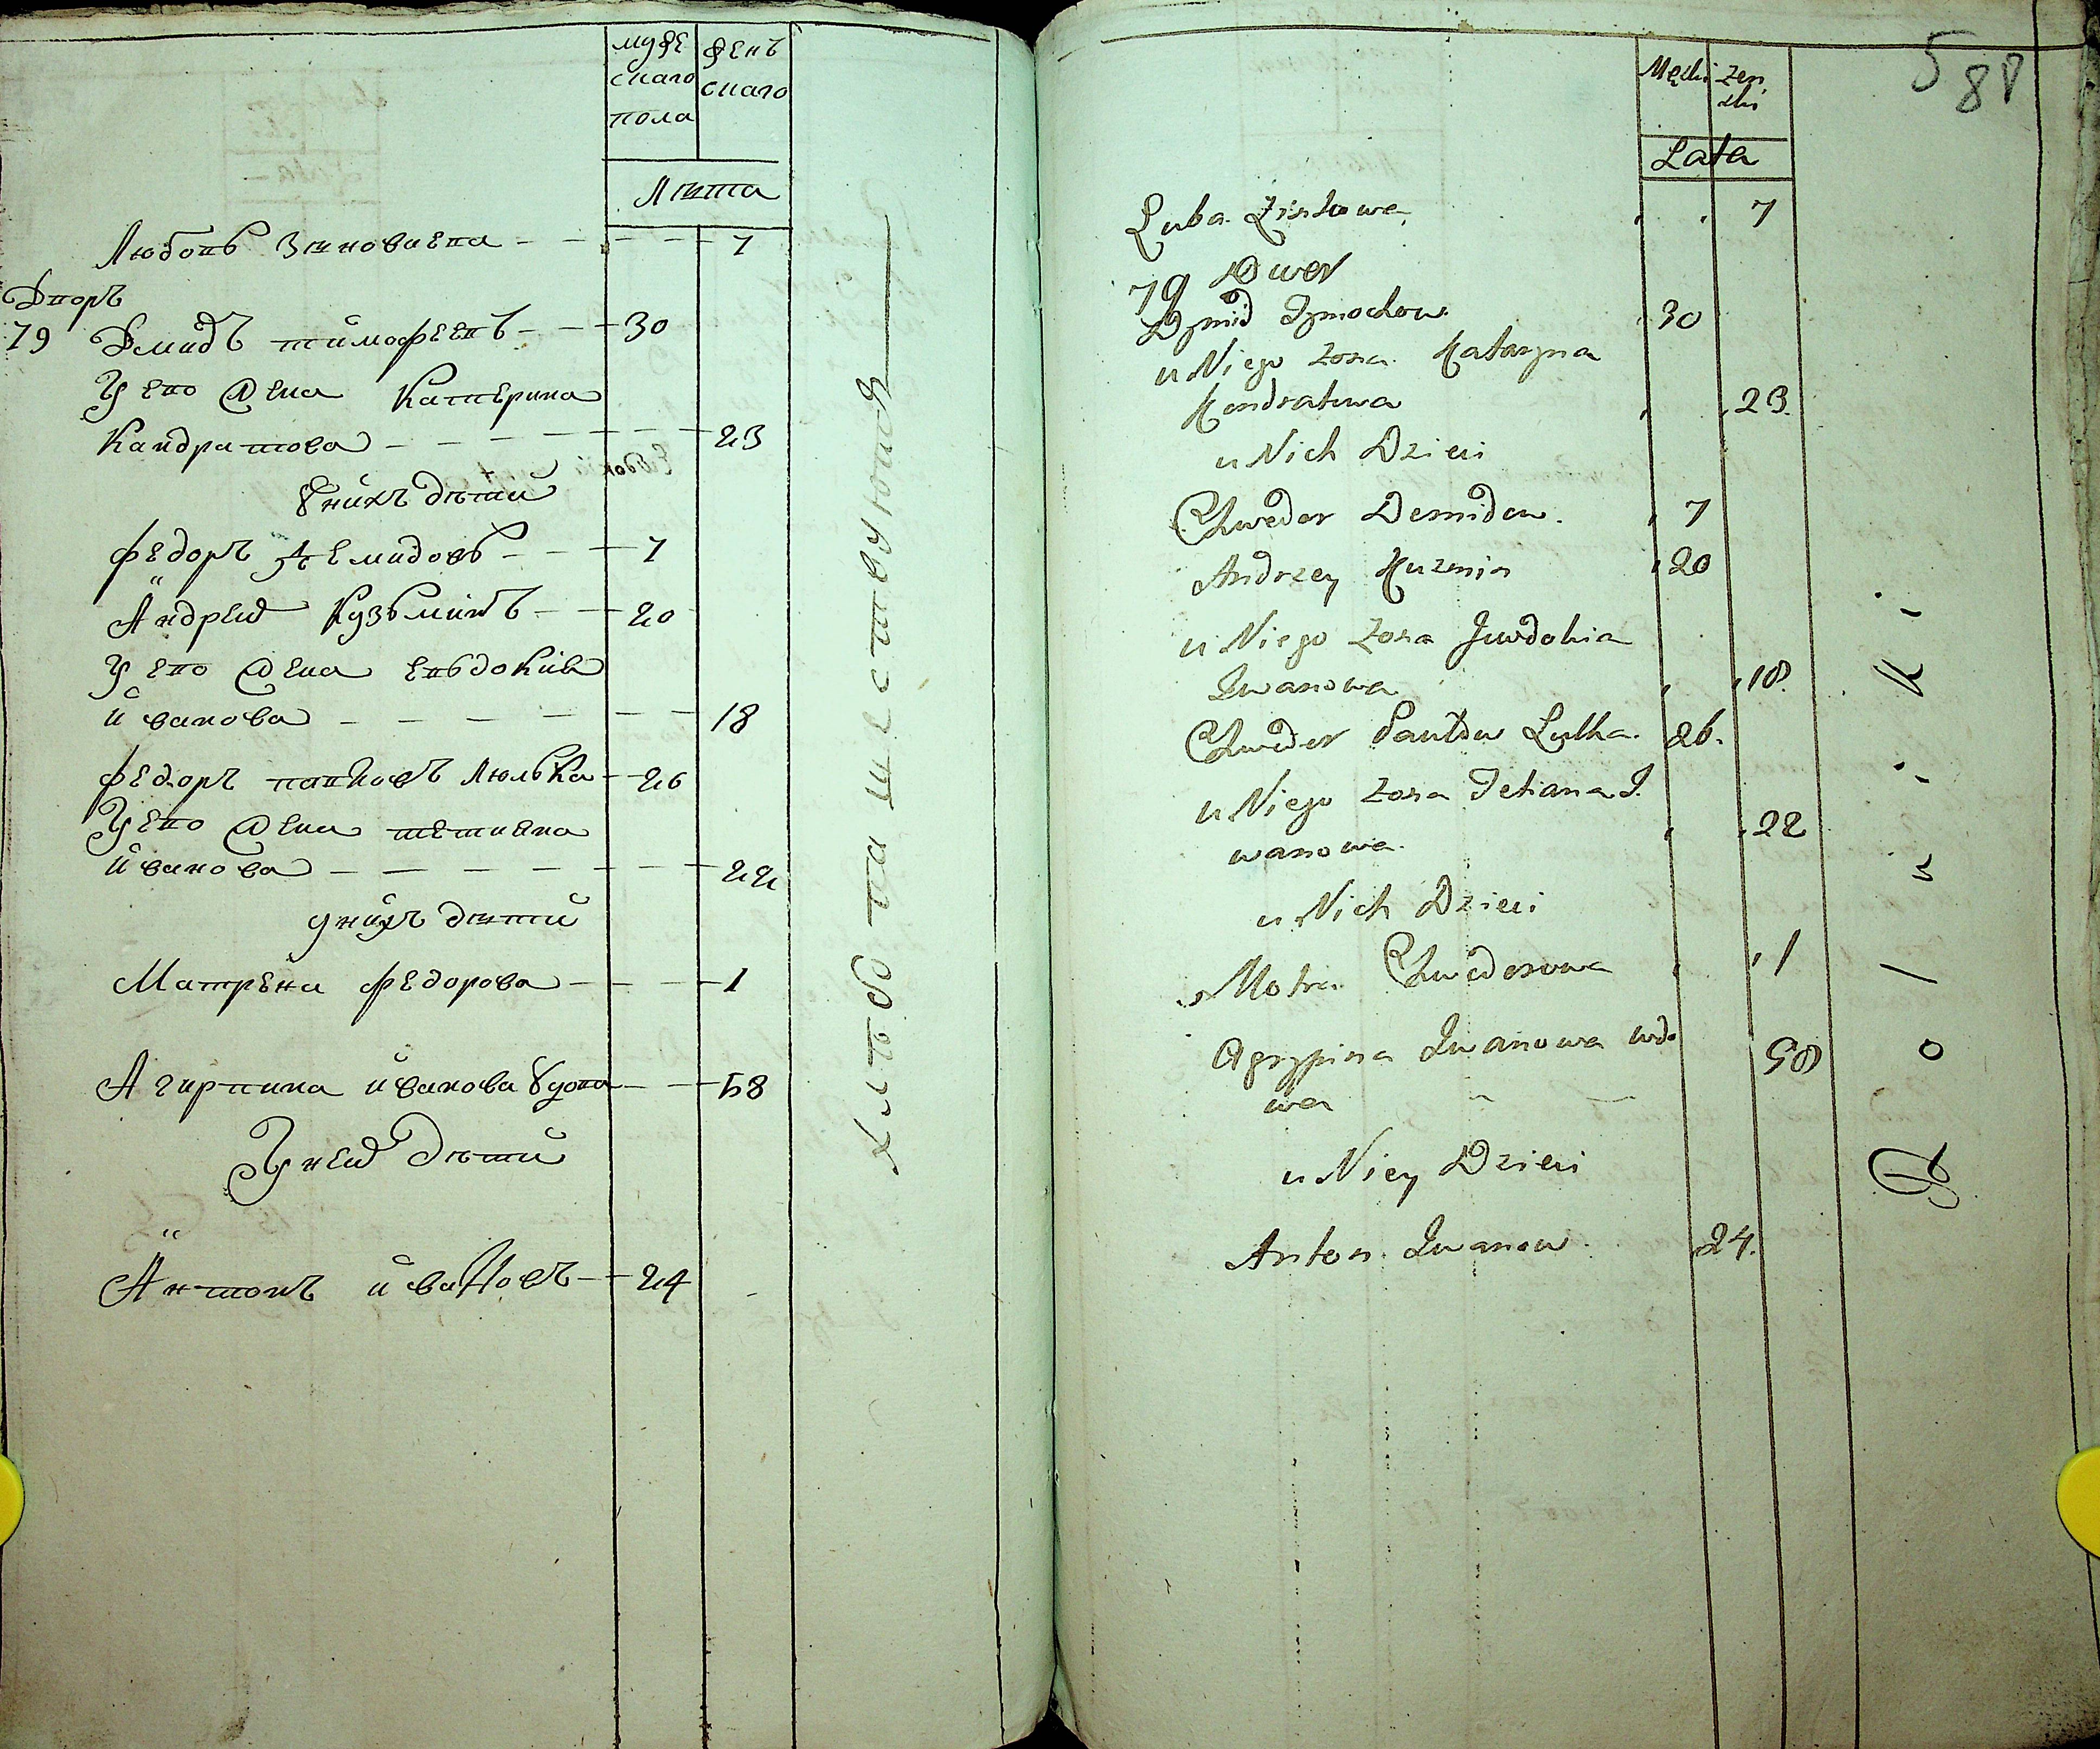 муже
скаго
пола
жень
скаго
Лѣта
Любовь Зиновиева - - - - 7
Дворъ
79 Дмидъ тимофеевъ - - - 30
У ево жена Катерина
Кандратова - - - - - - 23
У нихъ дѣти
федоръ Демидовъ - - - 7
Андрей Кузьминъ - - 20
У ево жена евьдокия
иванова - - - - - - 18
федоръ павловъ люлька - - 26
У ево жена татиана
иванова - - - - - - 22
у нихъ дѣти
Матрена федорова - - - 1
Агирпина иванова удова - - 58
У ней дѣти
Антонъ ивановъ - - 24
хлѣбопашествующая
588
Męzki
Zen
zki
Lata
Luba Zinkowa 7
79 Dwor
Dzmid Tymochow 30
u Niego Zona Kataryna
Kondratowa 23
u Nich Dzieci
Chwedor Demidow. 7
Andrzey Kuzmin 20
u Niego Zona Juwdokia
Iwanowa 18
Chwedor Pawłow Lulka. 26.
u Niego Zona Tetiana I.
wanowa. 22
u Nich Dzieci
Motra Chwedorowa 1
Agrypina Iwanowa wdo
wa 58
u Niey Dzieci
Anton Iwanow 24.
Rolniki